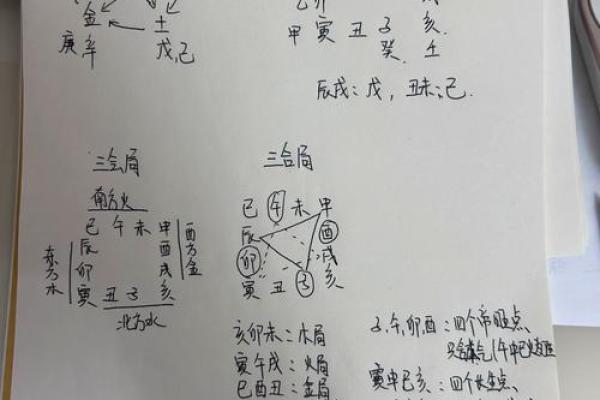 金 土
庚 辛 戊,己
乙卯
甲 寅 丑 子 亥.
癸. 壬
辰戌:戊, 丑未:己.
三会局
南方火
巳 午 未 申
辰 酉
卯 戌
寅 丑 子 亥
东方
西方金
北方水
三合局
巳 午 未 申
辰 酉
卯 戌
寅 丑 子 亥
亥卯未:木局
寅午戌:火局
巳酉丑:金局
子,午,卯,酉:四个帝旺点、
寅申巳亥:四个长生点、